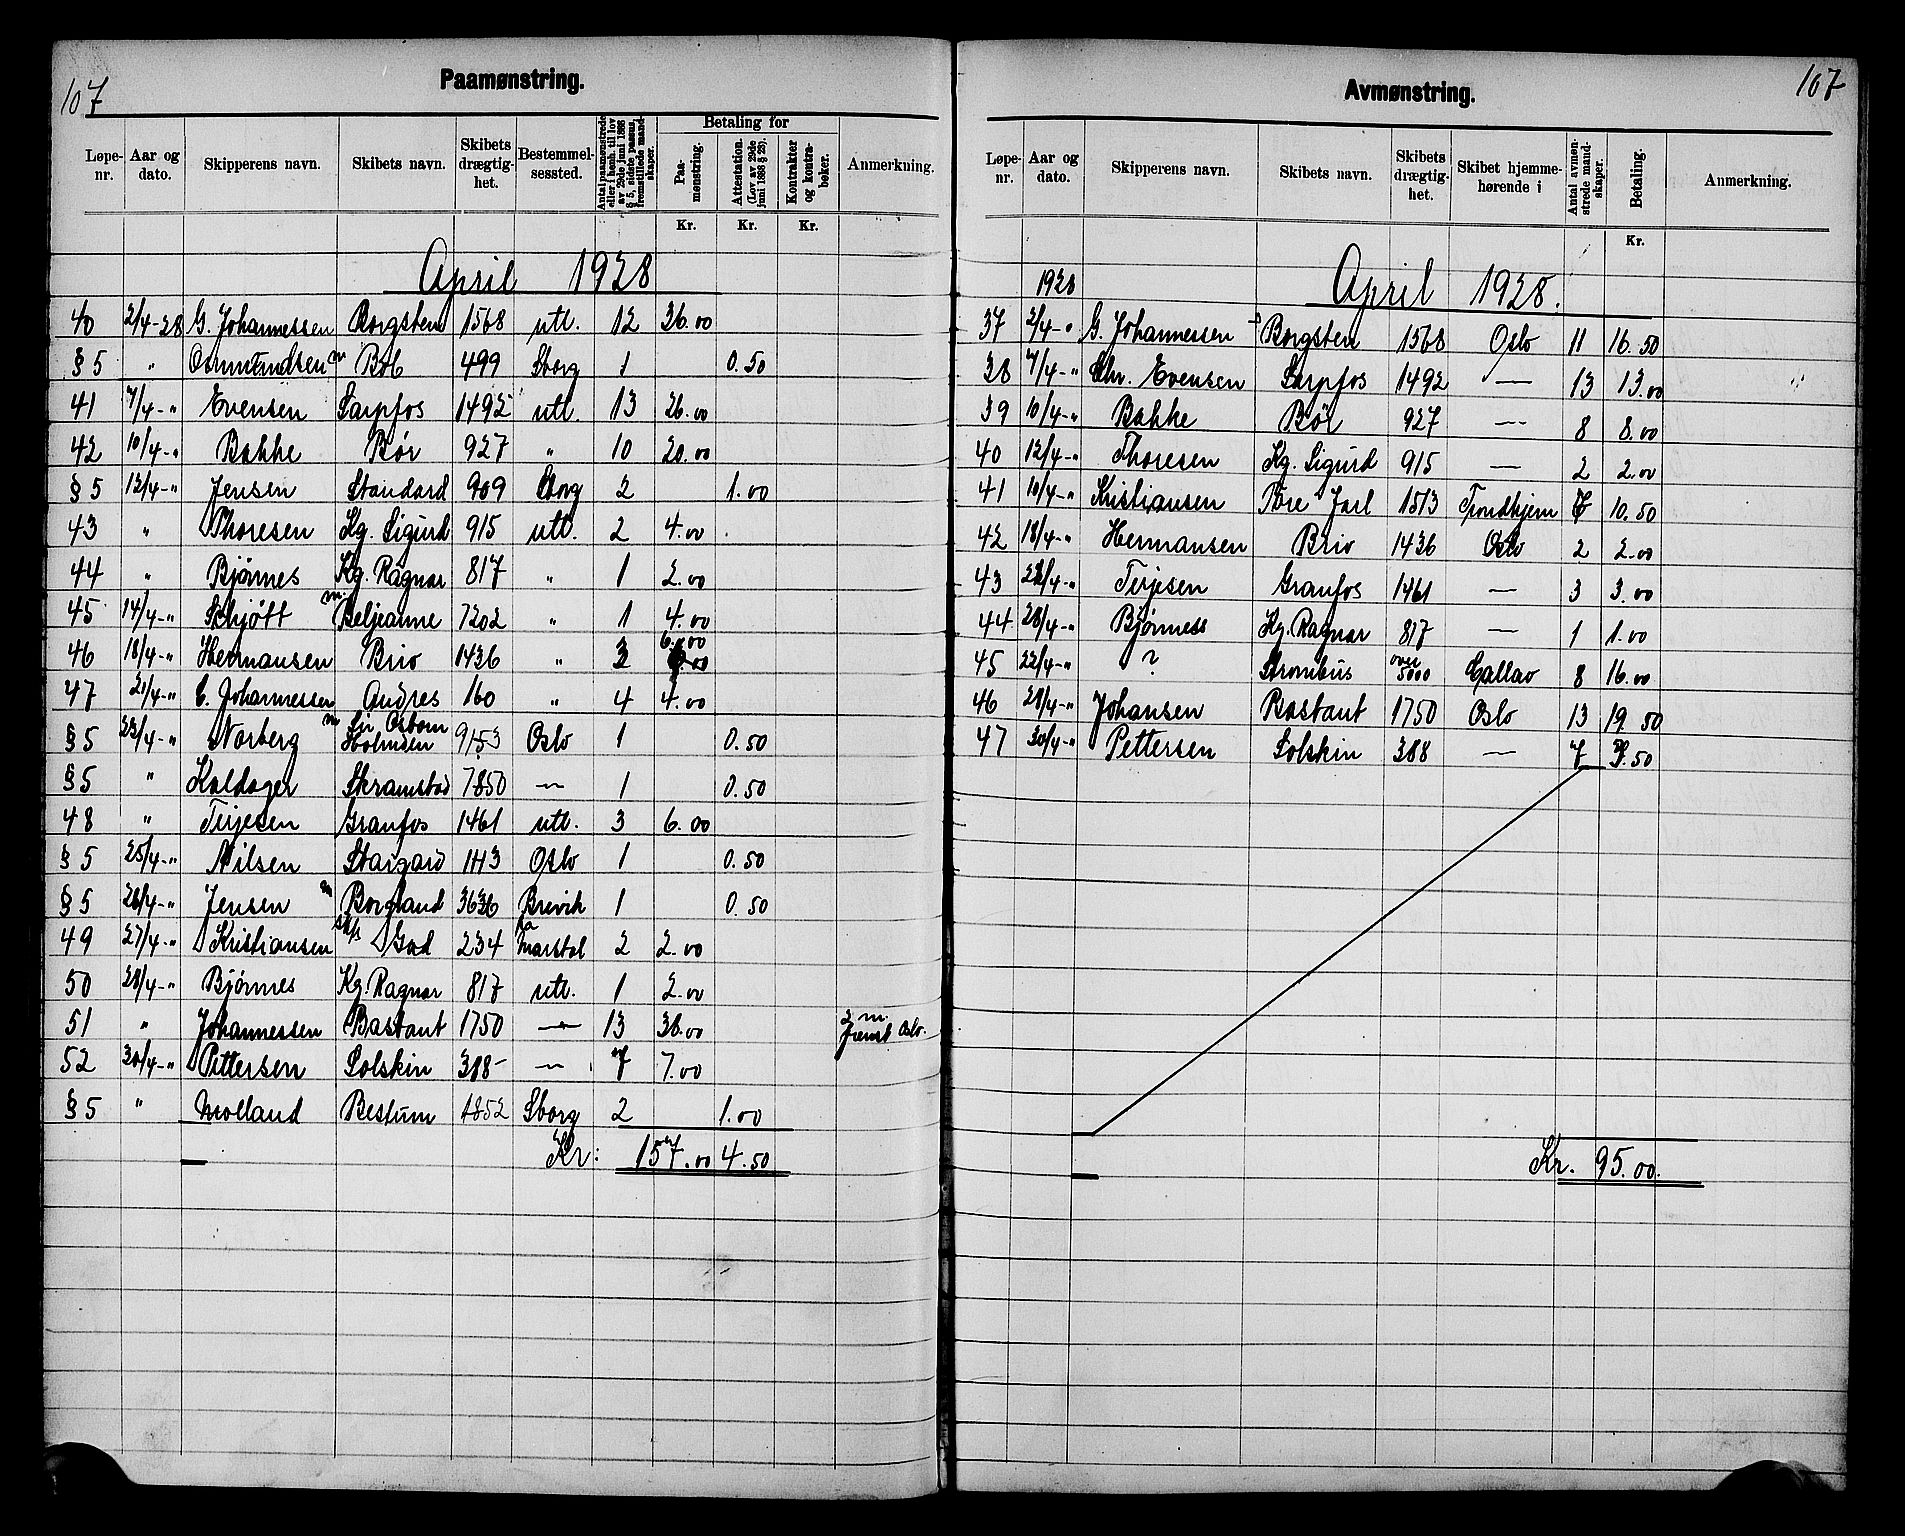 107
Paamønstring.
Løpe-nr. | Aar og dato. | Skipperens navn. | Skibets navn. | Skibets drægtig-het. | Bestemmel-sessted. | Antal paamønstrede eller i henh. til lov av 29de juni 1888 § 5, sidste passus, fremstillede mand-skaper. | Betaling for | Anmerkning.
Paa-mønstring. | Attestation. (Lov av 29de juni 1888 § 23). | Kontrakter og kontra-bøker.
Kr. | Kr. | Kr.
April 1928
40 | 2/4-28 | G. Johannessen | Borgsten | 1568 | utl. | 12 | 36.00
§ 5 | " | Osmundsen | m Bob | 499 | Sborg | 1 | | 0.50
41 | 7/4-" | Evensen | Sarpfos | 1492 | utl. | 13 | 26.00
42 | 10/4-" | Bakke | Bør | 927 | " | 10 | 20.00
§ 5 | 12/4-" | Jensen | Standard | 909 | Sborg | 2 | | 1.00
43 | " | Thoresen | Kg. Sigurd | 915 | utl. | 2 | 4.00
44 | " | Bjønnes | Kg. Ragnar | 817 | " | 1 | 2.00
45 | 14/4-" | Schjøtt | m. Beljeanne | 7202 | " | 1 | 4.00
46 | 18/4-" | Hermansen | Brio | 1436 | " | 3 | 6.00
47 | 21/4-" | C. Johannessen | Andres | 160 | " | 4 | 4.00
§ 5 | 23/4-" | Norberg | m Sir Osborn Holmden | 9153 | Oslo | 1 | | 0.50
§ 5 | " | Koldager | Skramstad | 7850 | — | 1 | | 0.50
48 | " | Terjesen | Granfos | 1461 | utl. | 3 | 6.00
§ 5 | 25/4-" | Nilsen | Stargard | 1113 | Oslo | 1 | | 0.50
§ 5 | 26/4-" | Jensen | m Borgland | 3636 | Brevik | 1 | | 0.50
49 | 27/4-" | Kristiansen | Gad | 234 | Marstal | 2 | 2.00
50 | 28/4-" | Bjønnes | Kg. Ragnar | 817 | utl. | 1 | 2.00
51 | " | Johannessen | Bastant | 1750 | — | 13 | 36.00 | | | 2 m. fremst Oslo.
52 | 30/4-" | Pettersen | Solskin | 388 | — | 7 | 7.00
§ 5 | " | Molland | Bestum | 1852 | Sborg | 2 | | 1.00
Kr: 157.00 4.50
107
Avmønstring.
Løpe-nr. | Aar og dato. | Skipperens navn. | Skibets navn. | Skibets drægtig-het. | Skibet hjemme-hørende i | Antal avmøn-strede mand-skaper. | Betaling. | Anmerkning.
Kr.
1928 April 1928.
37 | 2/4-" | G. Johannessen | Borgsten | 1568 | Oslo | 11 | 16.50
38 | 7/4-" | Chr. Evensen | Sarpfos | 1492 | — | 13 | 13.00
39 | 10/4-" | Bakke | Bør | 927 | — | 8 | 8.00
40 | 12/4-" | Thoresen | Kg. Sigurd | 915 | — | 2 | 2.00
41 | 10/4-" | Kristiansen | Tore Jarl | 1513 | Trondhjem | 7 | 10.50
42 | 18/4-" | Hermansen | Brio | 1436 | Oslo | 2 | 2.00
43 | 23/4-" | Terjesen | Granfos | 1461 | — | 3 | 3.00
44 | 28/4-" | Bjønness | Kg. Ragnar | 817 | — | 1 | 1.00
45 | 22/4-" | ? | Strombus | over 5000 | Callao | 8 | 16.00
46 | 28/4-" | Johansen | Bastant | 1750 | Oslo | 13 | 19.50
47 | 30/4-" | Pettersen | Solskin | 388 | — | 7 | 3.50
Kr. 95.00.